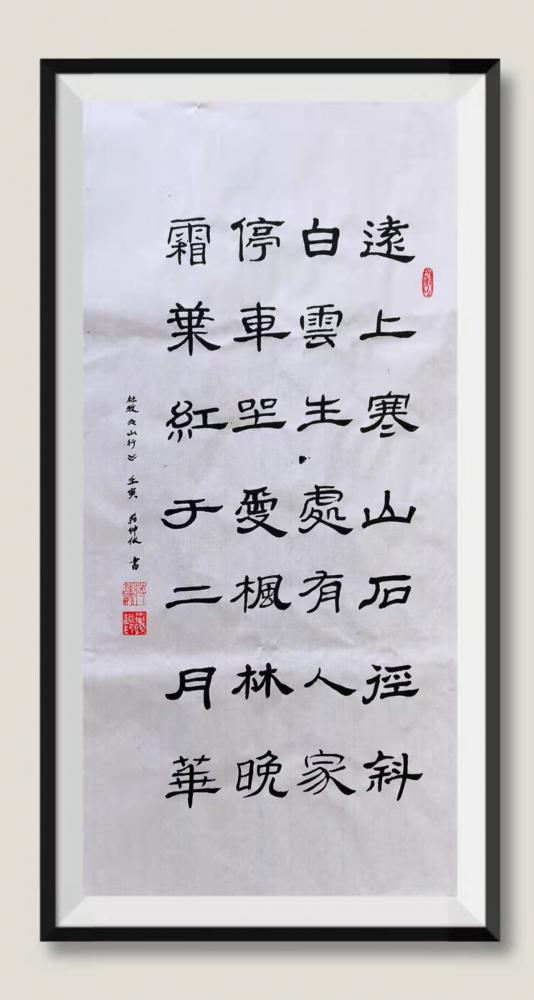 遠上寒山石徑斜
白雲生處有人家
停車坐愛楓林晚
霜葉紅于二月華
杜牧《山行》 壬寅 書